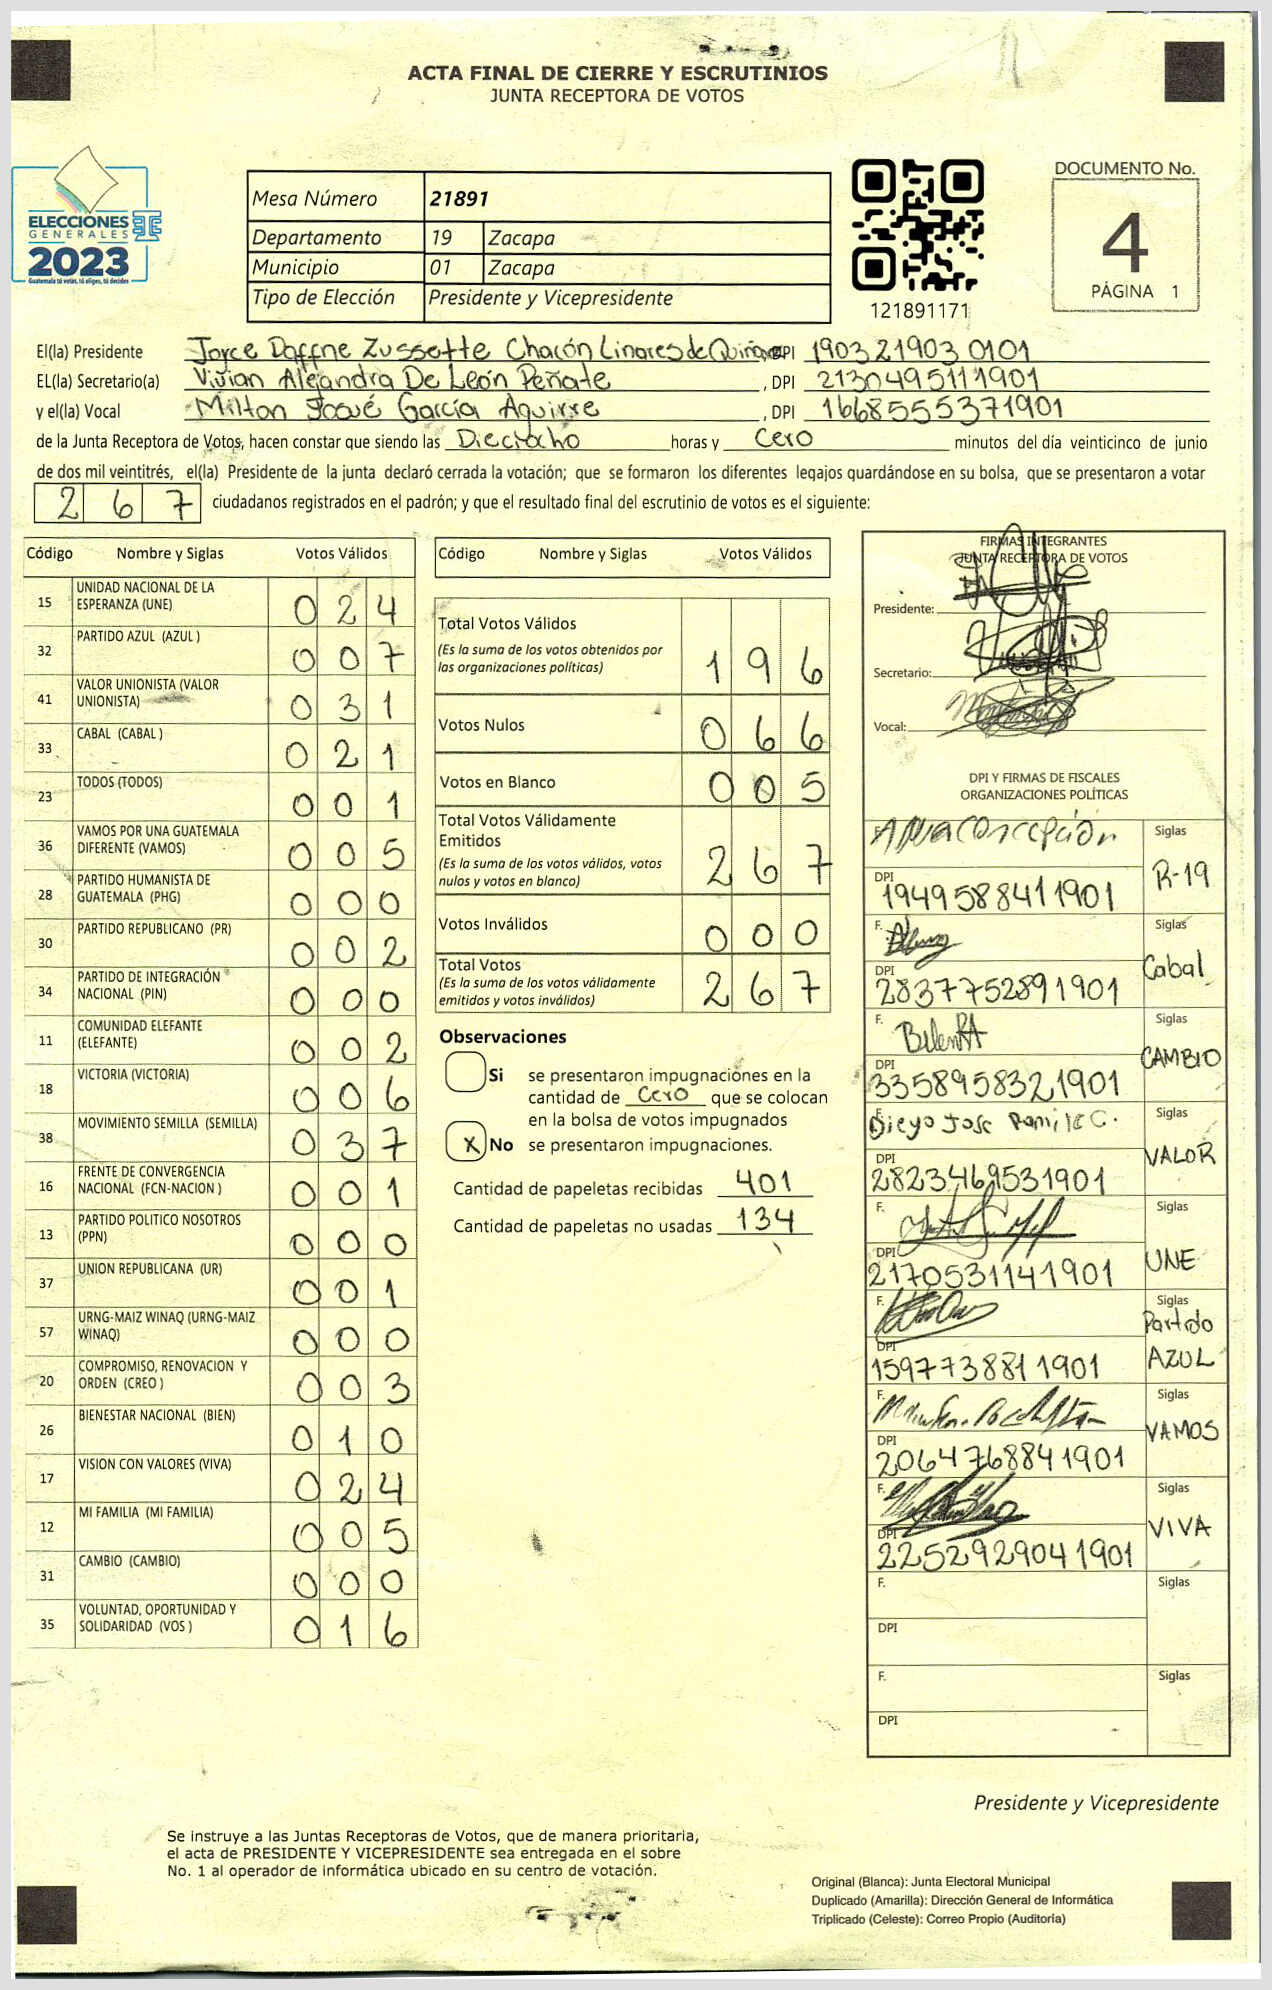 ACTA FINAL DE CIERRE Y ESCRUTINIOS
JUNTA RECEPTORA DE VOTOS
ELECCIONES
GENERALES
2023
Guatemala tú votas, tú eliges, tú decides
Mesa Número 21891
Departamento 19 Zacapa
Municipio 01 Zacapa
Tipo de Elección Presidente y Vicepresidente
121891171
DOCUMENTO No.
4
PÁGINA 1
El(la) Presidente Joyce Daffne Zussette Chacón Linares de Quiñonez DPI 190321903 0101
EL(la) Secretario(a) Vivian Alejandra De León Peñate , DPI 2130495111901
y el(la) Vocal Milton Josué García Aguirre , DPI 1668555371901
de la Junta Receptora de Votos, hacen constar que siendo las Dieciocho horas y Cero minutos del día veinticinco de junio
de dos mil veintitrés, el(la) Presidente de la junta declaró cerrada la votación; que se formaron los diferentes legajos guardándose en su bolsa, que se presentaron a votar
2 6 7 ciudadanos registrados en el padrón; y que el resultado final del escrutinio de votos es el siguiente:
Código Nombre y Siglas Votos Válidos
15 UNIDAD NACIONAL DE LA ESPERANZA (UNE) 0 2 4
32 PARTIDO AZUL (AZUL ) 0 0 7
41 VALOR UNIONISTA (VALOR UNIONISTA) 0 3 1
33 CABAL (CABAL ) 0 2 1
23 TODOS (TODOS) 0 0 1
36 VAMOS POR UNA GUATEMALA DIFERENTE (VAMOS) 0 0 5
28 PARTIDO HUMANISTA DE GUATEMALA (PHG) 0 0 0
30 PARTIDO REPUBLICANO (PR) 0 0 2
34 PARTIDO DE INTEGRACIÓN NACIONAL (PIN) 0 0 0
11 COMUNIDAD ELEFANTE (ELEFANTE) 0 0 2
18 VICTORIA (VICTORIA) 0 0 6
38 MOVIMIENTO SEMILLA (SEMILLA) 0 3 7
16 FRENTE DE CONVERGENCIA NACIONAL (FCN-NACION ) 0 0 1
13 PARTIDO POLITICO NOSOTROS (PPN) 0 0 0
37 UNION REPUBLICANA (UR) 0 0 1
57 URNG-MAIZ WINAQ (URNG-MAIZ WINAQ) 0 0 0
20 COMPROMISO, RENOVACION Y ORDEN (CREO ) 0 0 3
26 BIENESTAR NACIONAL (BIEN) 0 1 0
17 VISION CON VALORES (VIVA) 0 2 4
12 MI FAMILIA (MI FAMILIA) 0 0 5
31 CAMBIO (CAMBIO) 0 0 0
35 VOLUNTAD, OPORTUNIDAD Y SOLIDARIDAD (VOS ) 0 1 6
Código Nombre y Siglas Votos Válidos
Total Votos Válidos
(Es la suma de los votos obtenidos por
las organizaciones políticas) 1 9 6
Votos Nulos 0 6 6
Votos en Blanco 0 0 5
Total Votos Válidamente
Emitidos
(Es la suma de los votos válidos, votos
nulos y votos en blanco) 2 6 7
Votos Inválidos 0 0 0
Total Votos
(Es la suma de los votos válidamente
emitidos y votos inválidos) 2 6 7
Observaciones
Si se presentaron impugnaciones en la
cantidad de Cero que se colocan
en la bolsa de votos impugnados
X No se presentaron impugnaciones.
Cantidad de papeletas recibidas 401
Cantidad de papeletas no usadas 134
FIRMAS INTEGRANTES
JUNTA RECEPTORA DE VOTOS
Presidente:
Secretario:
Vocal:
DPI Y FIRMAS DE FISCALES
ORGANIZACIONES POLÍTICAS
F. Ana Concepción Siglas
DPI 1949588411901 R-19
F. Siglas
DPI 2837752891901 Cabal
F. Siglas
DPI 3358958321901 CAMBIO
F. Diego Jose Ramirez C. Siglas
DPI 2823469531901 VALOR
F. Siglas
DPI 2170531141901 UNE
F. Siglas
Partido
DPI 1597738811901 AZUL
F. Siglas
DPI 2064768841901 VAMOS
F. Siglas
DPI 2252929041901 VIVA
F. Siglas
DPI
F. Siglas
DPI
Presidente y Vicepresidente
Se instruye a las Juntas Receptoras de Votos, que de manera prioritaria,
el acta de PRESIDENTE Y VICEPRESIDENTE sea entregada en el sobre
No. 1 al operador de informática ubicado en su centro de votación.
Original (Blanca): Junta Electoral Municipal
Duplicado (Amarilla): Dirección General de Informática
Triplicado (Celeste): Correo Propio (Auditoría)